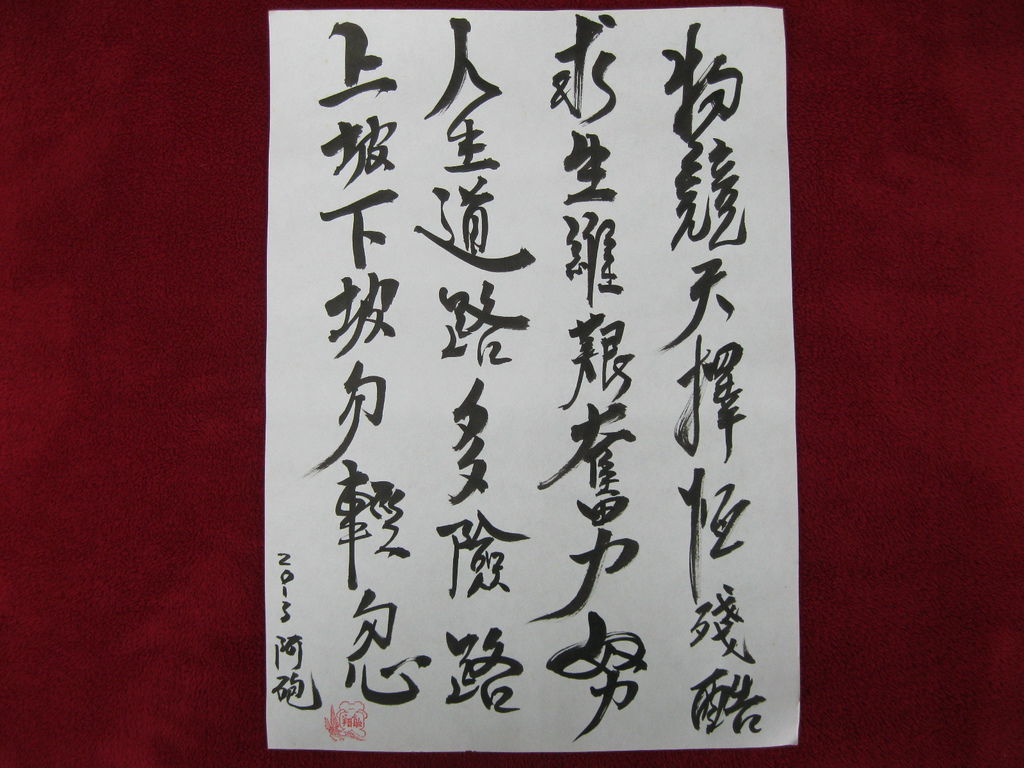 物競天擇恆殘酷
求生維艱奮力努
人生道路多險路
上坡下坡勿輕忽
2013 阿砲